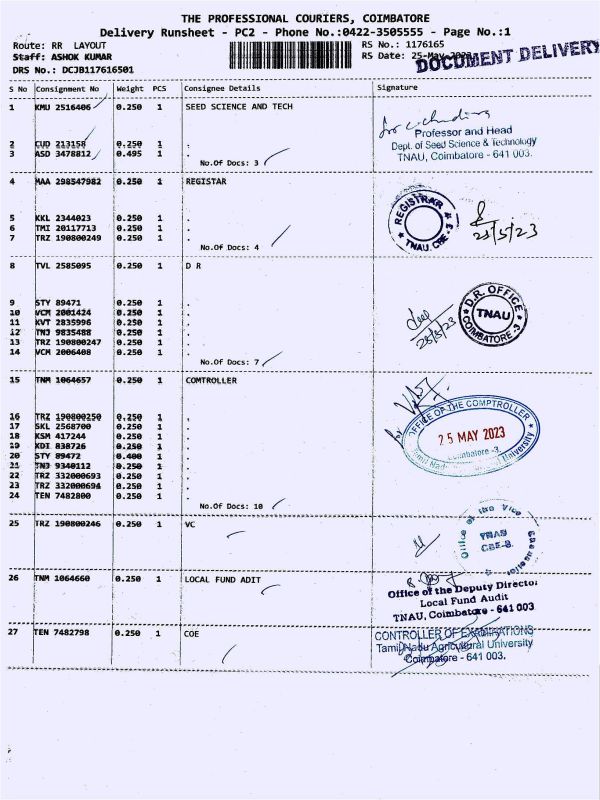 THE PROFESSIONAL COURIERS, COIMBATORE
Delivery Runsheet - PC2 - Phone No.:0422-3505555 - Page No.:1
Route: RR LAYOUT
RS No.: 1176165
Staff: ASHOK KUMAR
RS Date: 25-May-2023
DOCUMENT DELIVERY
DRS No.: DCJB117616501
S No Consignment No Weight PCS Consignee Details Signature
1 KMU 2516406 0.250 1 SEED SCIENCE AND TECH
Professor and Head
Dept. of Seed Science & Technology
TNAU, Coimbatore - 641 003.
2 CUD 213158 0.250 1 .
3 ASD 3478812 0.495 1 .
No.Of Docs: 3
4 MAA 298547982 0.250 1 REGISTAR
REGISTRAR
TNAU, CBE-3
25/5/23
5 KKL 2344023 0.250 1 .
6 TMI 20117713 0.250 1 .
7 TRZ 190800249 0.250 1 .
No.Of Docs: 4
8 TVL 2585095 0.250 1 D R
D.R. OFFICE
TNAU
COIMBATORE-3
25/5/23
9 STY 89471 0.250 1 .
10 VCM 2001424 0.250 1 .
11 KVT 2835996 0.250 1 .
12 TNJ 9835488 0.250 1 .
13 TRZ 190800247 0.250 1 .
14 VCM 2006408 0.250 1 .
No.Of Docs: 7
15 TNM 1064657 0.250 1 COMTROLLER
OFFICE OF THE COMPTROLLER
25 MAY 2023
Coimbatore -3.
Tamil Nadu Agricultural University
16 TRZ 190800250 0.250 1 .
17 SKL 2568700 0.250 1 .
18 KSM 417244 0.250 1 .
19 KDI 838726 0.250 1 .
20 STY 89472 0.400 1 .
21 TNJ 9340112 0.250 1 .
22 TRZ 332000693 0.250 1 .
23 TRZ 332000694 0.250 1 .
24 TEN 7482800 0.250 1 .
No.Of Docs: 10
25 TRZ 190800246 0.250 1 VC
Office of the Vice Chancellor
TNAU
CBE-3.
26 TNM 1064660 0.250 1 LOCAL FUND ADIT
Office of the Deputy Director
Local Fund Audit
TNAU, Coimbatore - 641 003
27 TEN 7482798 0.250 1 COE
CONTROLLER OF EXAMINATIONS
Tamil Nadu Agricultural University
Coimbatore - 641 003.